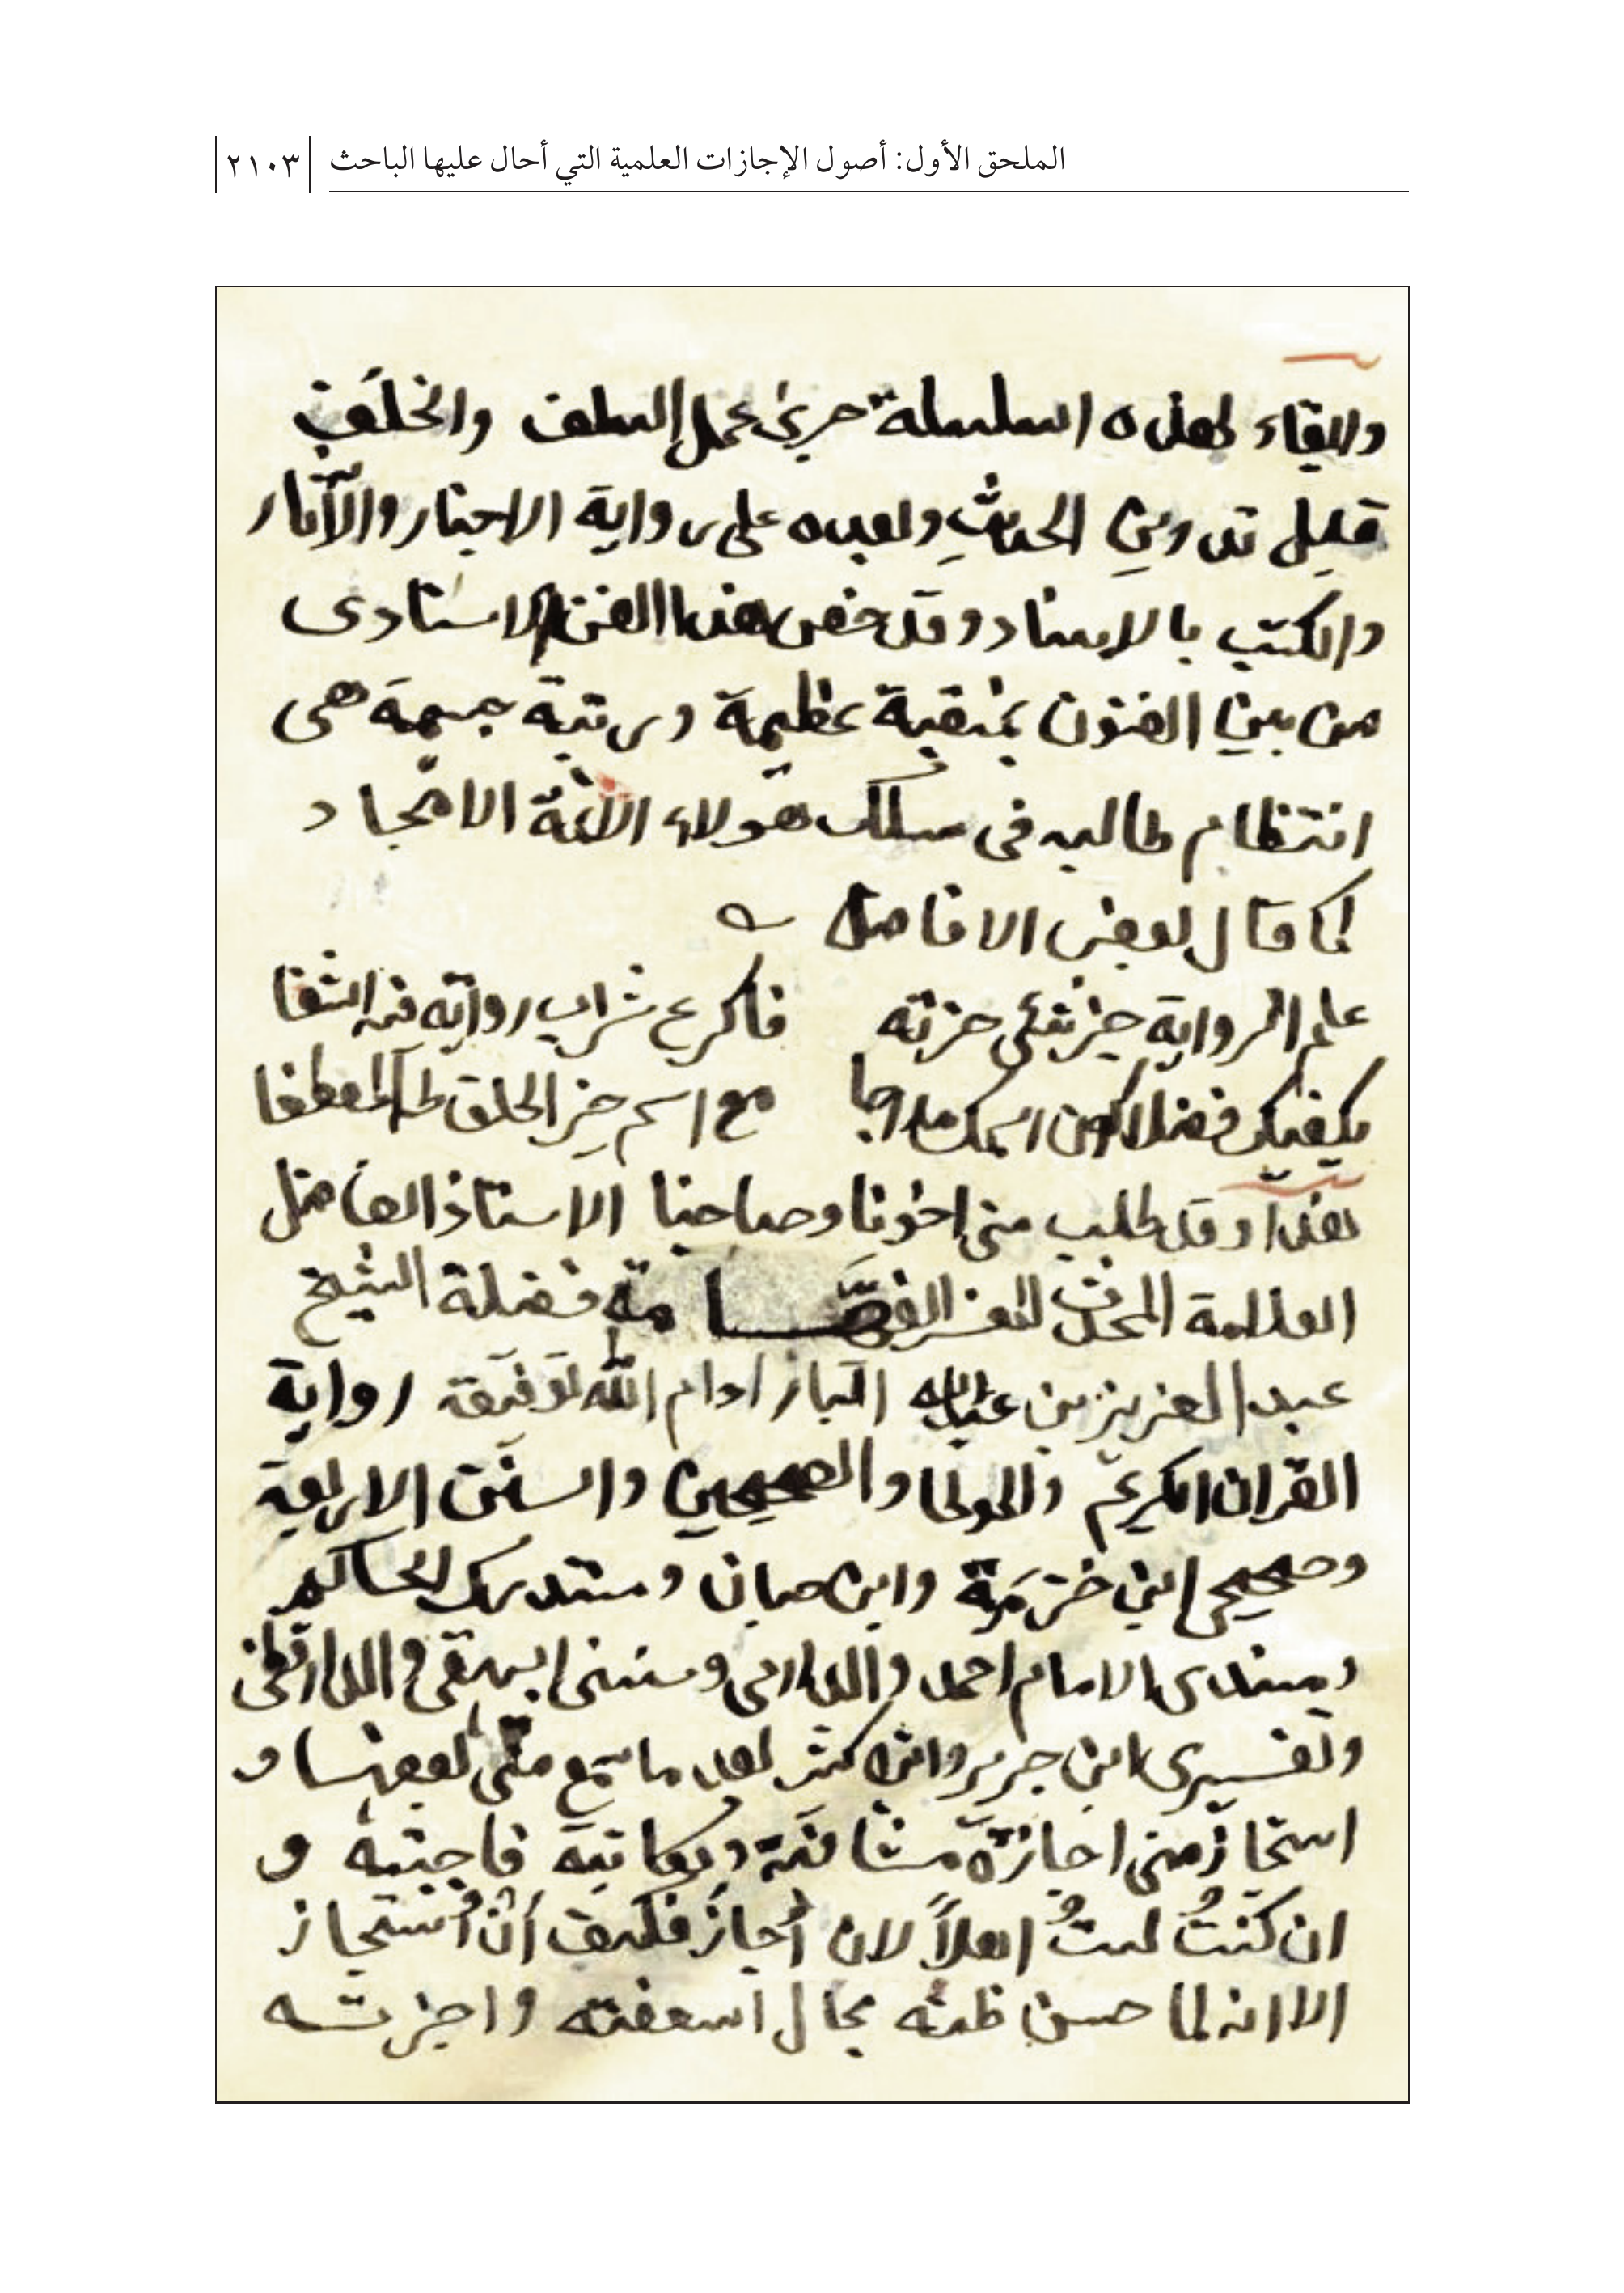 الملحق الأول: أصول الإجازات العلمية التي أحال عليها الباحث ٢١٠٣
وابقاء لهذه السلسلة جرى عمل السلف والخلف
قبل تدوين الحديث وبعده على رواية الاخبار والآثار
والكتب بالاسناد وقد خص هذا الفن الاسنادى
من بين الفنون بمنقبة عظيمة ورتبة جسيمة هى
انتظام طالبه فى سلك هولاء الائمة الامجاد
كما قال بعض الافاضل
علم الرواية خير شئى حزته فاكرع شراب رواته فيه الشفا
يكفيك فضلا كون اسمك مدرجا مع اسم خير الخلق طه المصطفا
هذا وقد طلب منى اخونا وصاحبنا الاستاذ الفاضل
العلامة المحدث المفسر الفهامة فضيلة الشيخ
عبد العزيز بن عبدالله الباز ادام الله توفيقه رواية
القران الكريم والموطا والصحيحين والسنن الاربعة
وصحيحى ابن خزيمة وابن حبان ومستدرك الحاكم
ومسندى الامام احمد والدارمى وسننى البيهقى والدارقطنى
وتفسيرى ابن جرير وابن كثير بعد ما سمع منى بعضها و
استجاز منى اجازة مشافهة ومكاتبة فاجبته و
ان كنتُ لستُ اهلاً لان أُجازَ فكيف أن أُستجاز
الا انه لما حسن ظنه بحال اسعفته واجزته